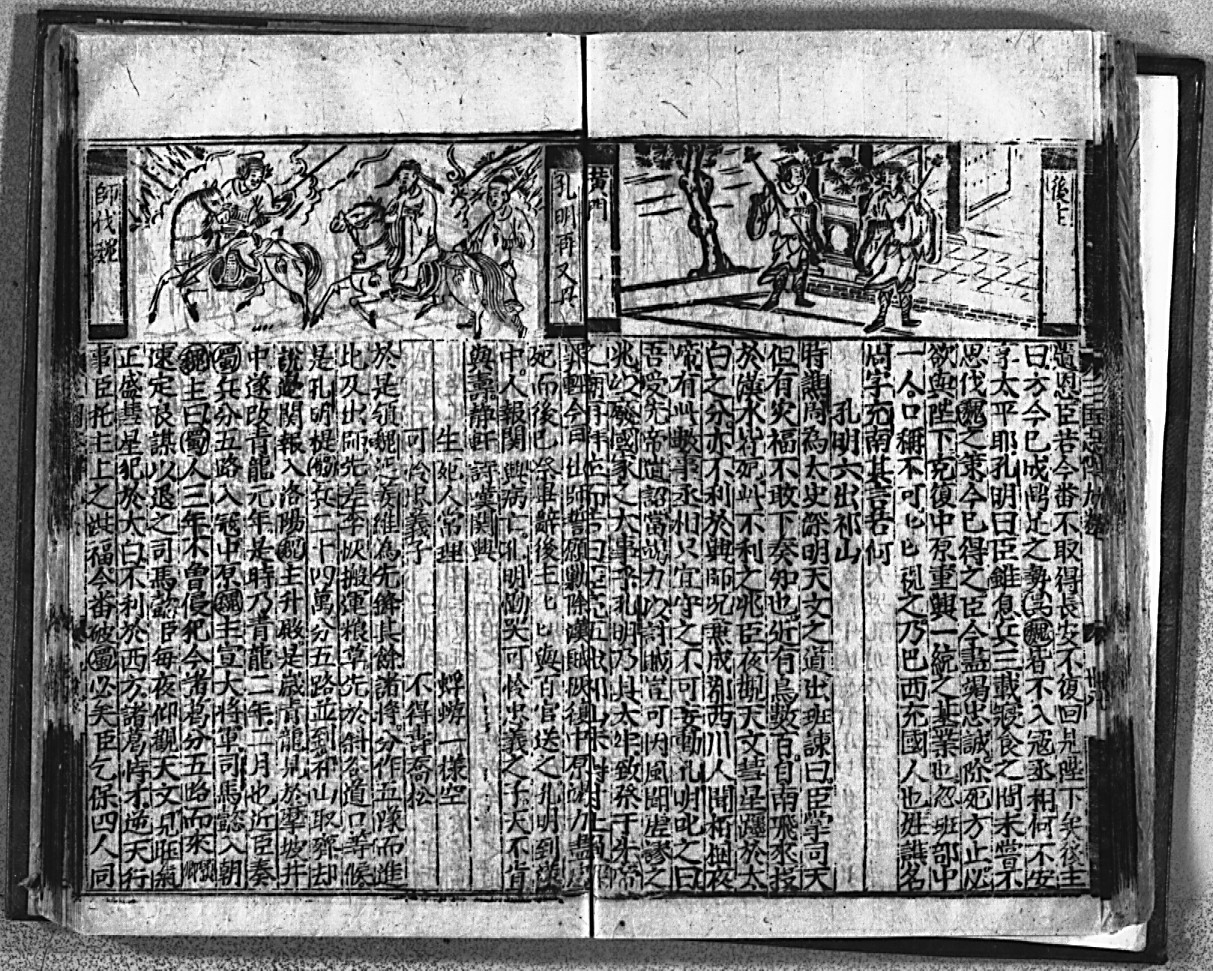 後主
黄門
遺恩臣若今番不取得長安不復回見陛下矣後主
曰方今已成鼎足之勢吳魏皆不入寇丞相何不安
享太平耶孔明曰臣雖息兵三載寢食之間未嘗不
思伐魏之策今已得之臣今盡竭忠誠除死方止必
欲與陛下克復中原重興一統之基業也忽班部中
一人口稱不可匕匕視之乃巴西充國人也姓譙名
周字允南其言若何
孔明六出祁山
時譙周為太史餘明天文之道出班諫曰臣掌司天
但有災福不敢不奏知也近有鳥數百自南飛來投
於漢水皆死此不利之兆臣夜觀天文彗星躔於太
白之分亦不利於興師况兼成都西川人聞栢樹夜
啼有此數事丞相只宜守之不可妄動孔明叱之曰
吾受先帝遺詔當竭力以討賊豈可因風聞虚謬之
兆以癈國家之大事乎孔明乃具太牢致祭于昭帝
之廟
孔明再又興
師伐魏
死而後已祭畢辭後主匕匕與百官送之孔明到漢
中人報関興病亡孔明慟哭可怜忠義之子天不肯
與壽静軒詩嘆関興
生死人常理
蜉蝣一樣空
可怜忠義子
不得壽喬松
於是領魏延姜維為先鋒其餘諸將分作五隊而進
比及出師先差李恢搬運粮草先於斜谷道口等候
是孔明提蜀兵二十四萬分五路並到祁山取齊却
說邊関報入洛陽魏主升殿是歲青龍見於摩坡井
中遂改青龍元年是時乃青龍二年二月也近臣奏
蜀兵分五路入寇中原魏主宣大將軍司馬懿入朝
魏主曰蜀人三年不曾侵犯今諸葛分五路而來
速定良謀以退之司馬懿臣每夜仰觀天文見旺氣
正盛彗星犯於太白不利於西方諸葛恃才逆天行
事臣托主上之福今番破蜀必矣臣乞保四人同